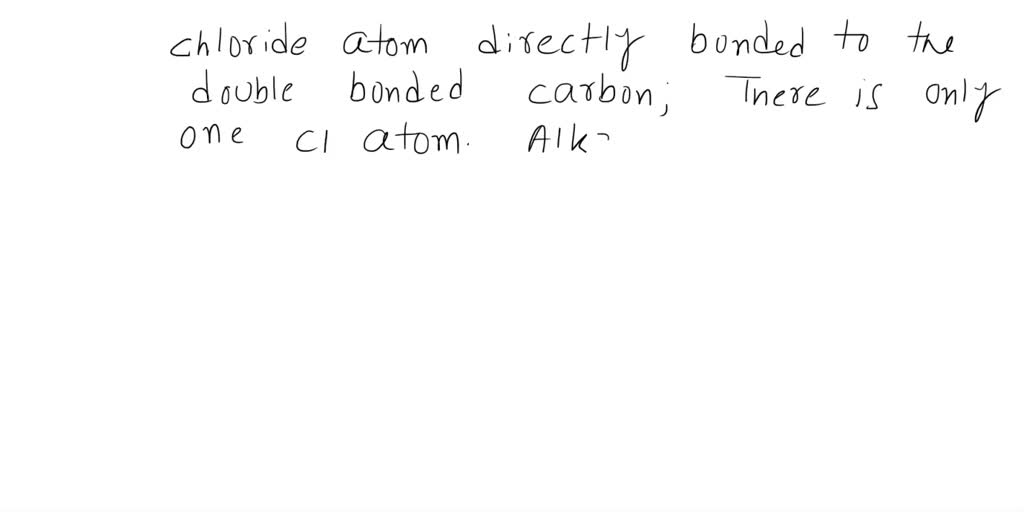 chloride atom directly bonded to the
double bonded carbon; There is only
one Cl atom. Alk